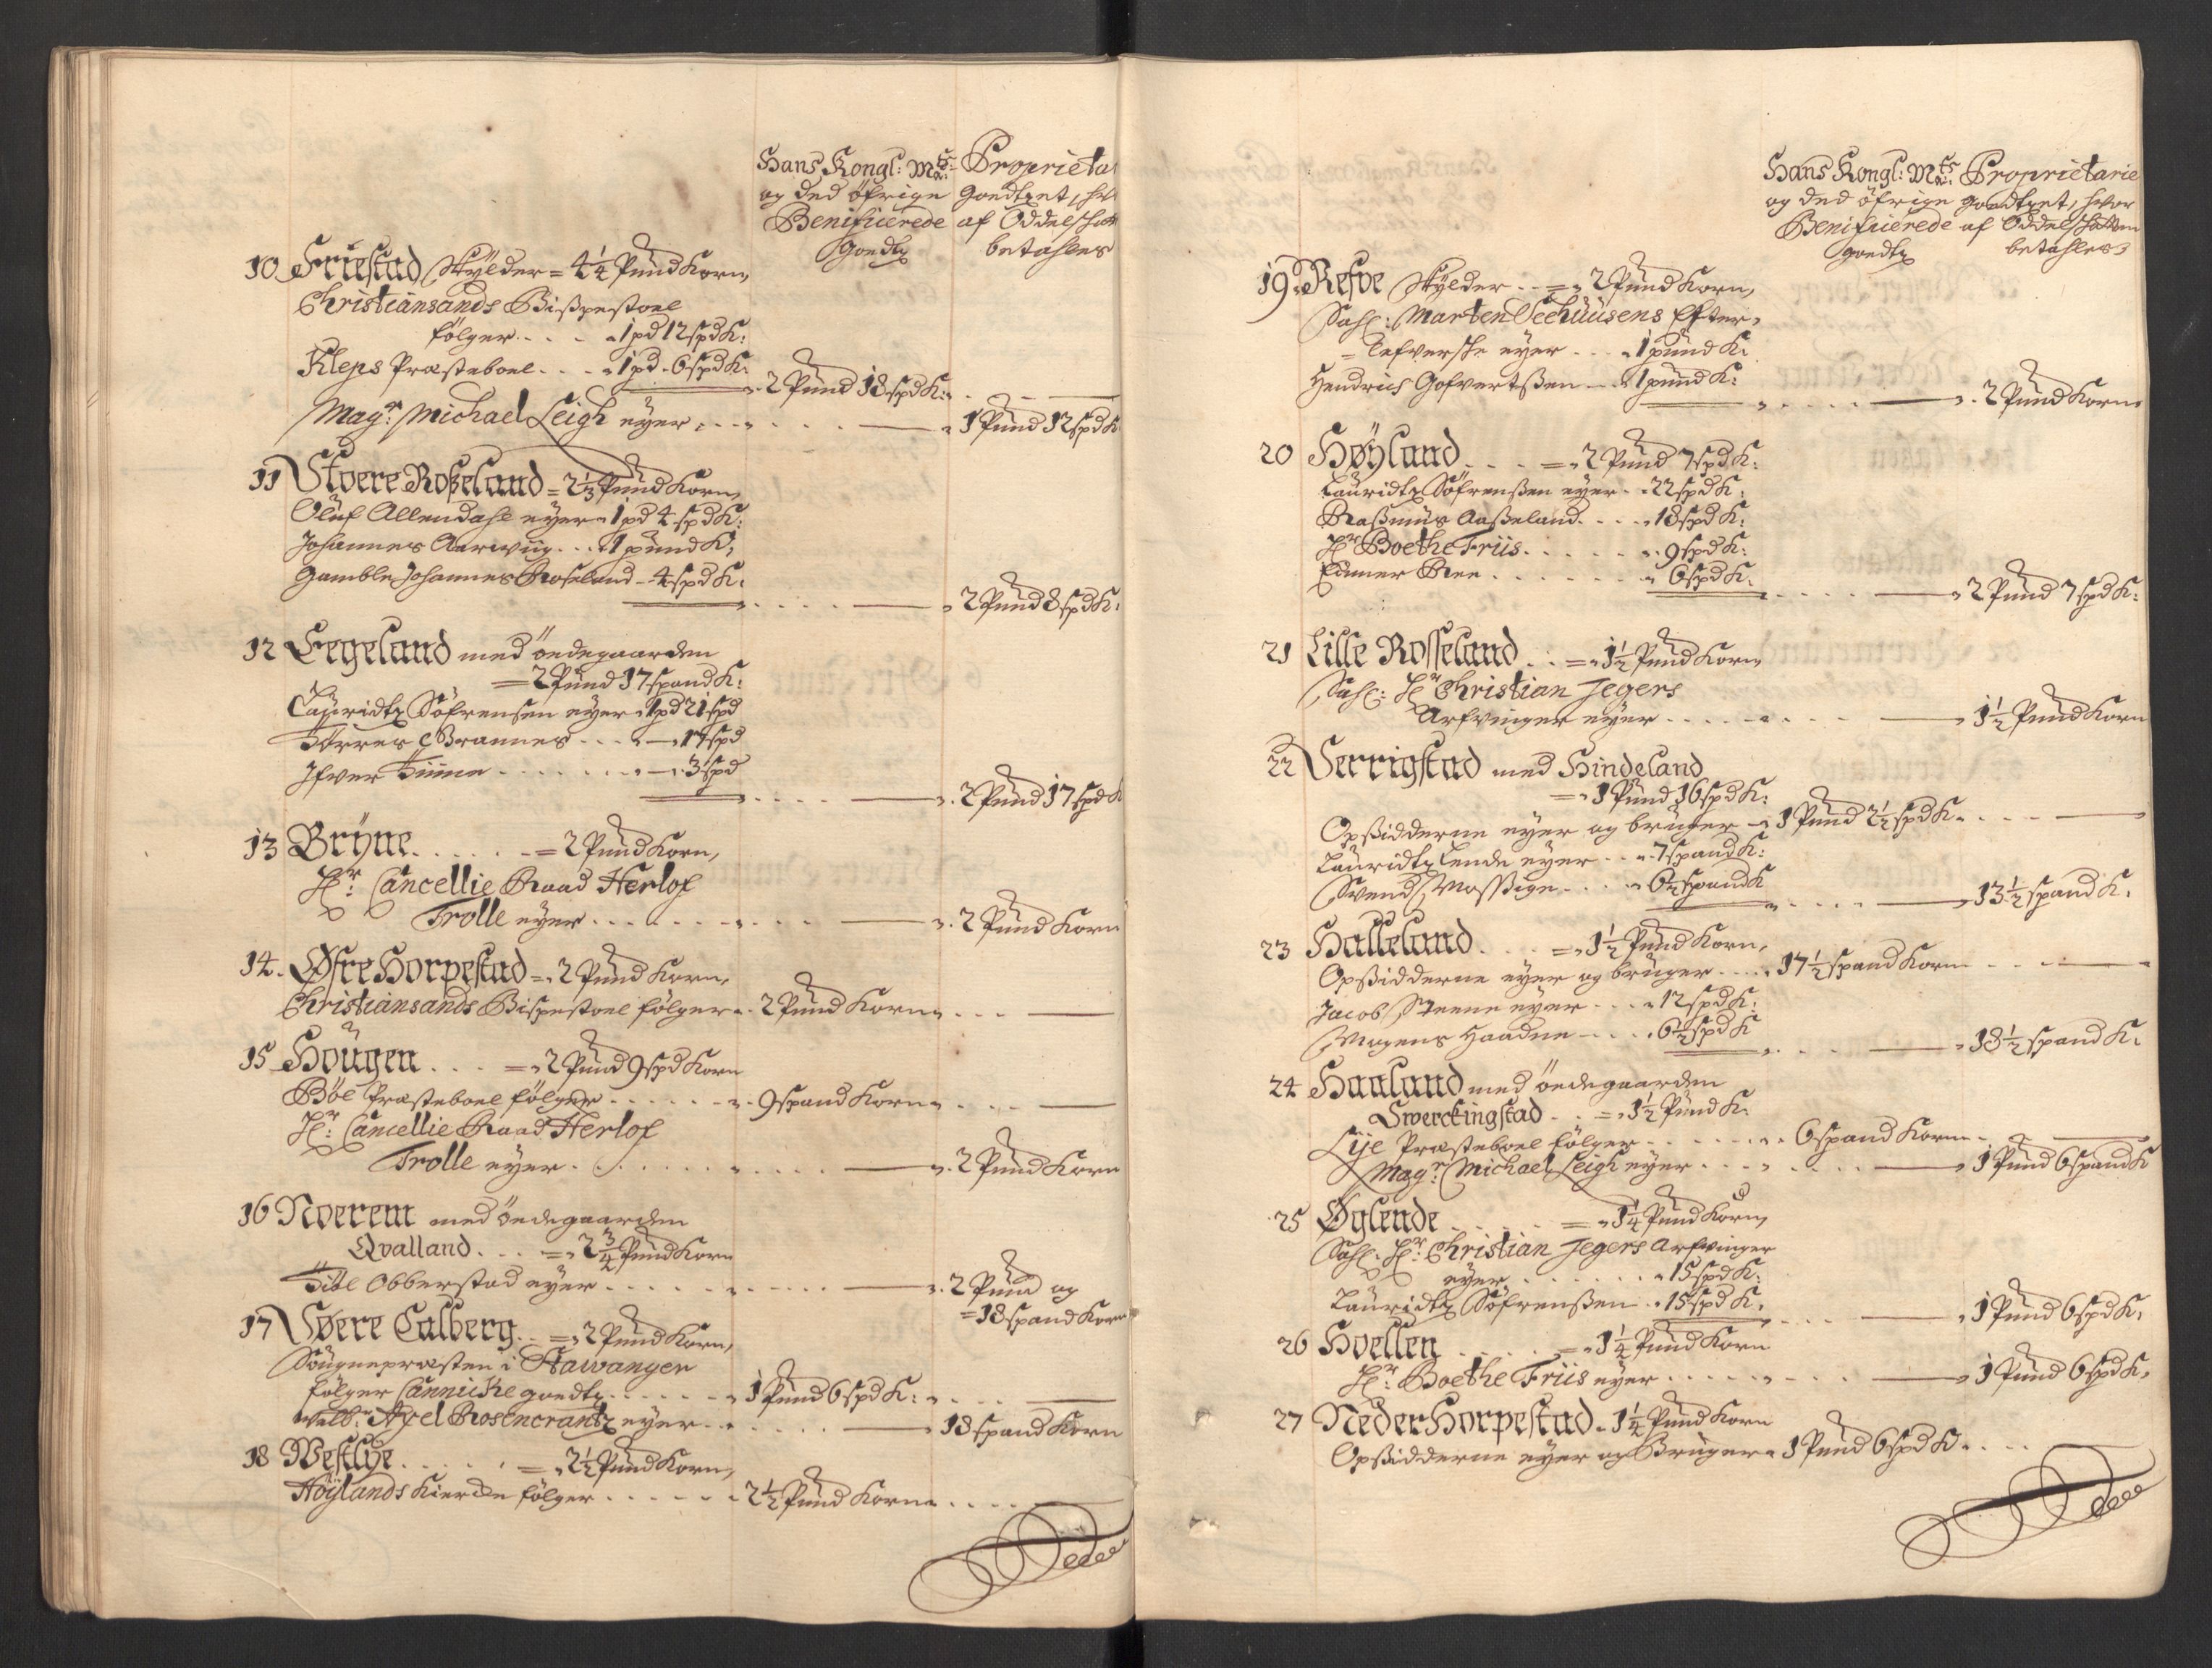 Hans Kongl: Mts: Proprieta
og ded öfrige goedtzet, hv
Benificerede af Oddelschatt
goedtz betahles
10 Friestad skÿlder = 4 1/4 Pund Korn,
Christiansands Bißpestoel
følger . . . . 1pd 12spd K:
Kleps Præsteboel . . . 1pd. 6spd K:
2 Pund 18spd K:
Magr: Michael Leigh eÿer . . . 1 Pund 12spd K
11 Stoere Roßeland = 2 1/3 Pund Korn,
Oluf Allendahl eÿer 1pd 4spd K:
Johannes Aarwiig . . . 1 pund K,
Gamble Johannes Roseland - 4spd K:
2 Pund 8spd K:
12 Eegeland med ödegaarden
= 2 Pund 17spand K:
Lauridtz Söfrensen eÿer 1pd 21spd
Törres Brannes . . . 17spd
Ifver Tiime . . . . . 3spd
2 Pund 17spd K
13 Brÿne . . . . . = 2 Pund Korn,
Hr: Cancellie Raad Herlof
Trolle eÿer . . . . . 2 Pund Korn
14. Øfre Horpestad = 2 Pund Korn,
Christiansands Bispestoel følger . 2 Pund Korn
15 Hougen . . . = 2 Pund 9spd Korn
Böe Præsteboel følger . . . . . 9spand Korn
Hr: Cancellie Raad Herlof
Trolle eÿer . . . . . 2 Pund Korn
16 Noerem med ödegaarden
Qvalland . . . = 2 3/4 Pund Korn
Obberstad eÿer . . . . . 2 Pund og
= 18spand Korn
17 Søere Calberg . . = 2 Pund Korn,
Sougnepræsten i Stawanger
følger Cannicke goedtz . . . . . 1 Pund 6spd K:
Welb: Axel Rosencrantz eÿer . . . 18spand Korn
18 Westlÿe . . . . . = 2 1/2 Pund Korn,
Höÿlands Kiercke følger . . . . . 2 1/2 Pund Korn
Hans Kongl: Mts: Proprietarie
og ded öfrige goedtzet, hvor
Benificerede af Oddelschatten
goedtz betahles
19. Refve skÿlder . . = 2 Pund Korn,
Sahl: Marten Seehuusens Efter-
= lefverske eÿer . . . 1 pund K.
Hendrich Gofvertßen . . 1 pund K:
2 Pund Korn
20 Høÿland . . . = 2 Pund 7spd K:
Lauridtz Söfrenßen eÿer . 22spd K:
Raßmus Aaßeland . . . 18spd K:
Hr Boethe Friis . . . . . 9spd K:
Einner Bree . . . . . 6spd K.
2 Pund 7spd K:
21 Lille Rosseland . . = 1 1/2 Pund Korn
Sahl: Hr Christian Jegers
Arfvinger eÿer . . . . . 1 1/2 Pund Korn
22 Serrigstad med Hindeland
= 1 Pund 16spd K:
Opsidderne eÿer og bruger 1 Pund 2 1/2 spd K.
Lauridtz Lende eÿer . . . 7spand K:
Svend Massige . . . . 6 1/2 spand K
13 1/2 spand K.
23 Halleland . . . = 1 1/2 Pund Korn,
Opsidderne eÿer og bruger . . . 17 1/2 spand Korn
Jacob Steene eÿer . . . 12spd K:
Mogens Haadne . . . . 6 1/2 spd K
18 1/2 spand K.
24 Haaland med ödegaarden
Swerckingstad . . = 1 1/2 Pund K.
Lÿe Præsteboel følger . . . . . 6spand Korn
Magr: Michael Leigh eÿer . . . 1 Pund 6spand K
25 Øglende . . . . . = 1 1/4 Pund Korn,
Sahl: Hr: Christian Jegers Arfvinger
eÿer . . . . . 15spd K:
Lauridtz Söfrenßen . . 15spd K.
1 Pund 6spd K.
26 Hoellen . . . . . = 1 1/4 Pund Korn
Hr: Boethe Friis eÿer . . . . . 1 Pund 6spd K.
27 Neder Horpestad . 1 1/4 Pund Korn
Opsidderne eÿer og Bruger 1 Pund 6spd K.